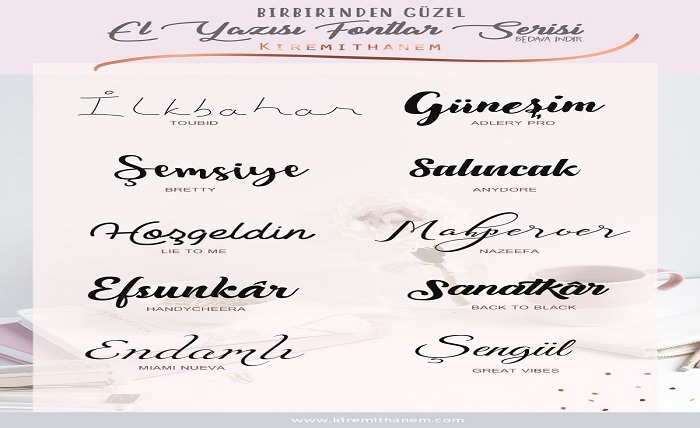 BIRBIRINDEN GÜZEL
El Yazısı Fontlar Serisi
BEDAVA İNDİR
KIREMITHANEM
İlkbahar
TOUBID
Güneşim
ADLERY PRO
Şemsiye
BRETTY
Salıncak
ANYDORE
Hoşgeldin
LIE TO ME
Mahperver
NAZEEFA
Efsunkâr
HANDYCHEERA
Sanatkâr
BACK TO BLACK
Endamlı
MIAMI NUEVA
Şengül
GREAT VIBES
www.kiremithanem.com